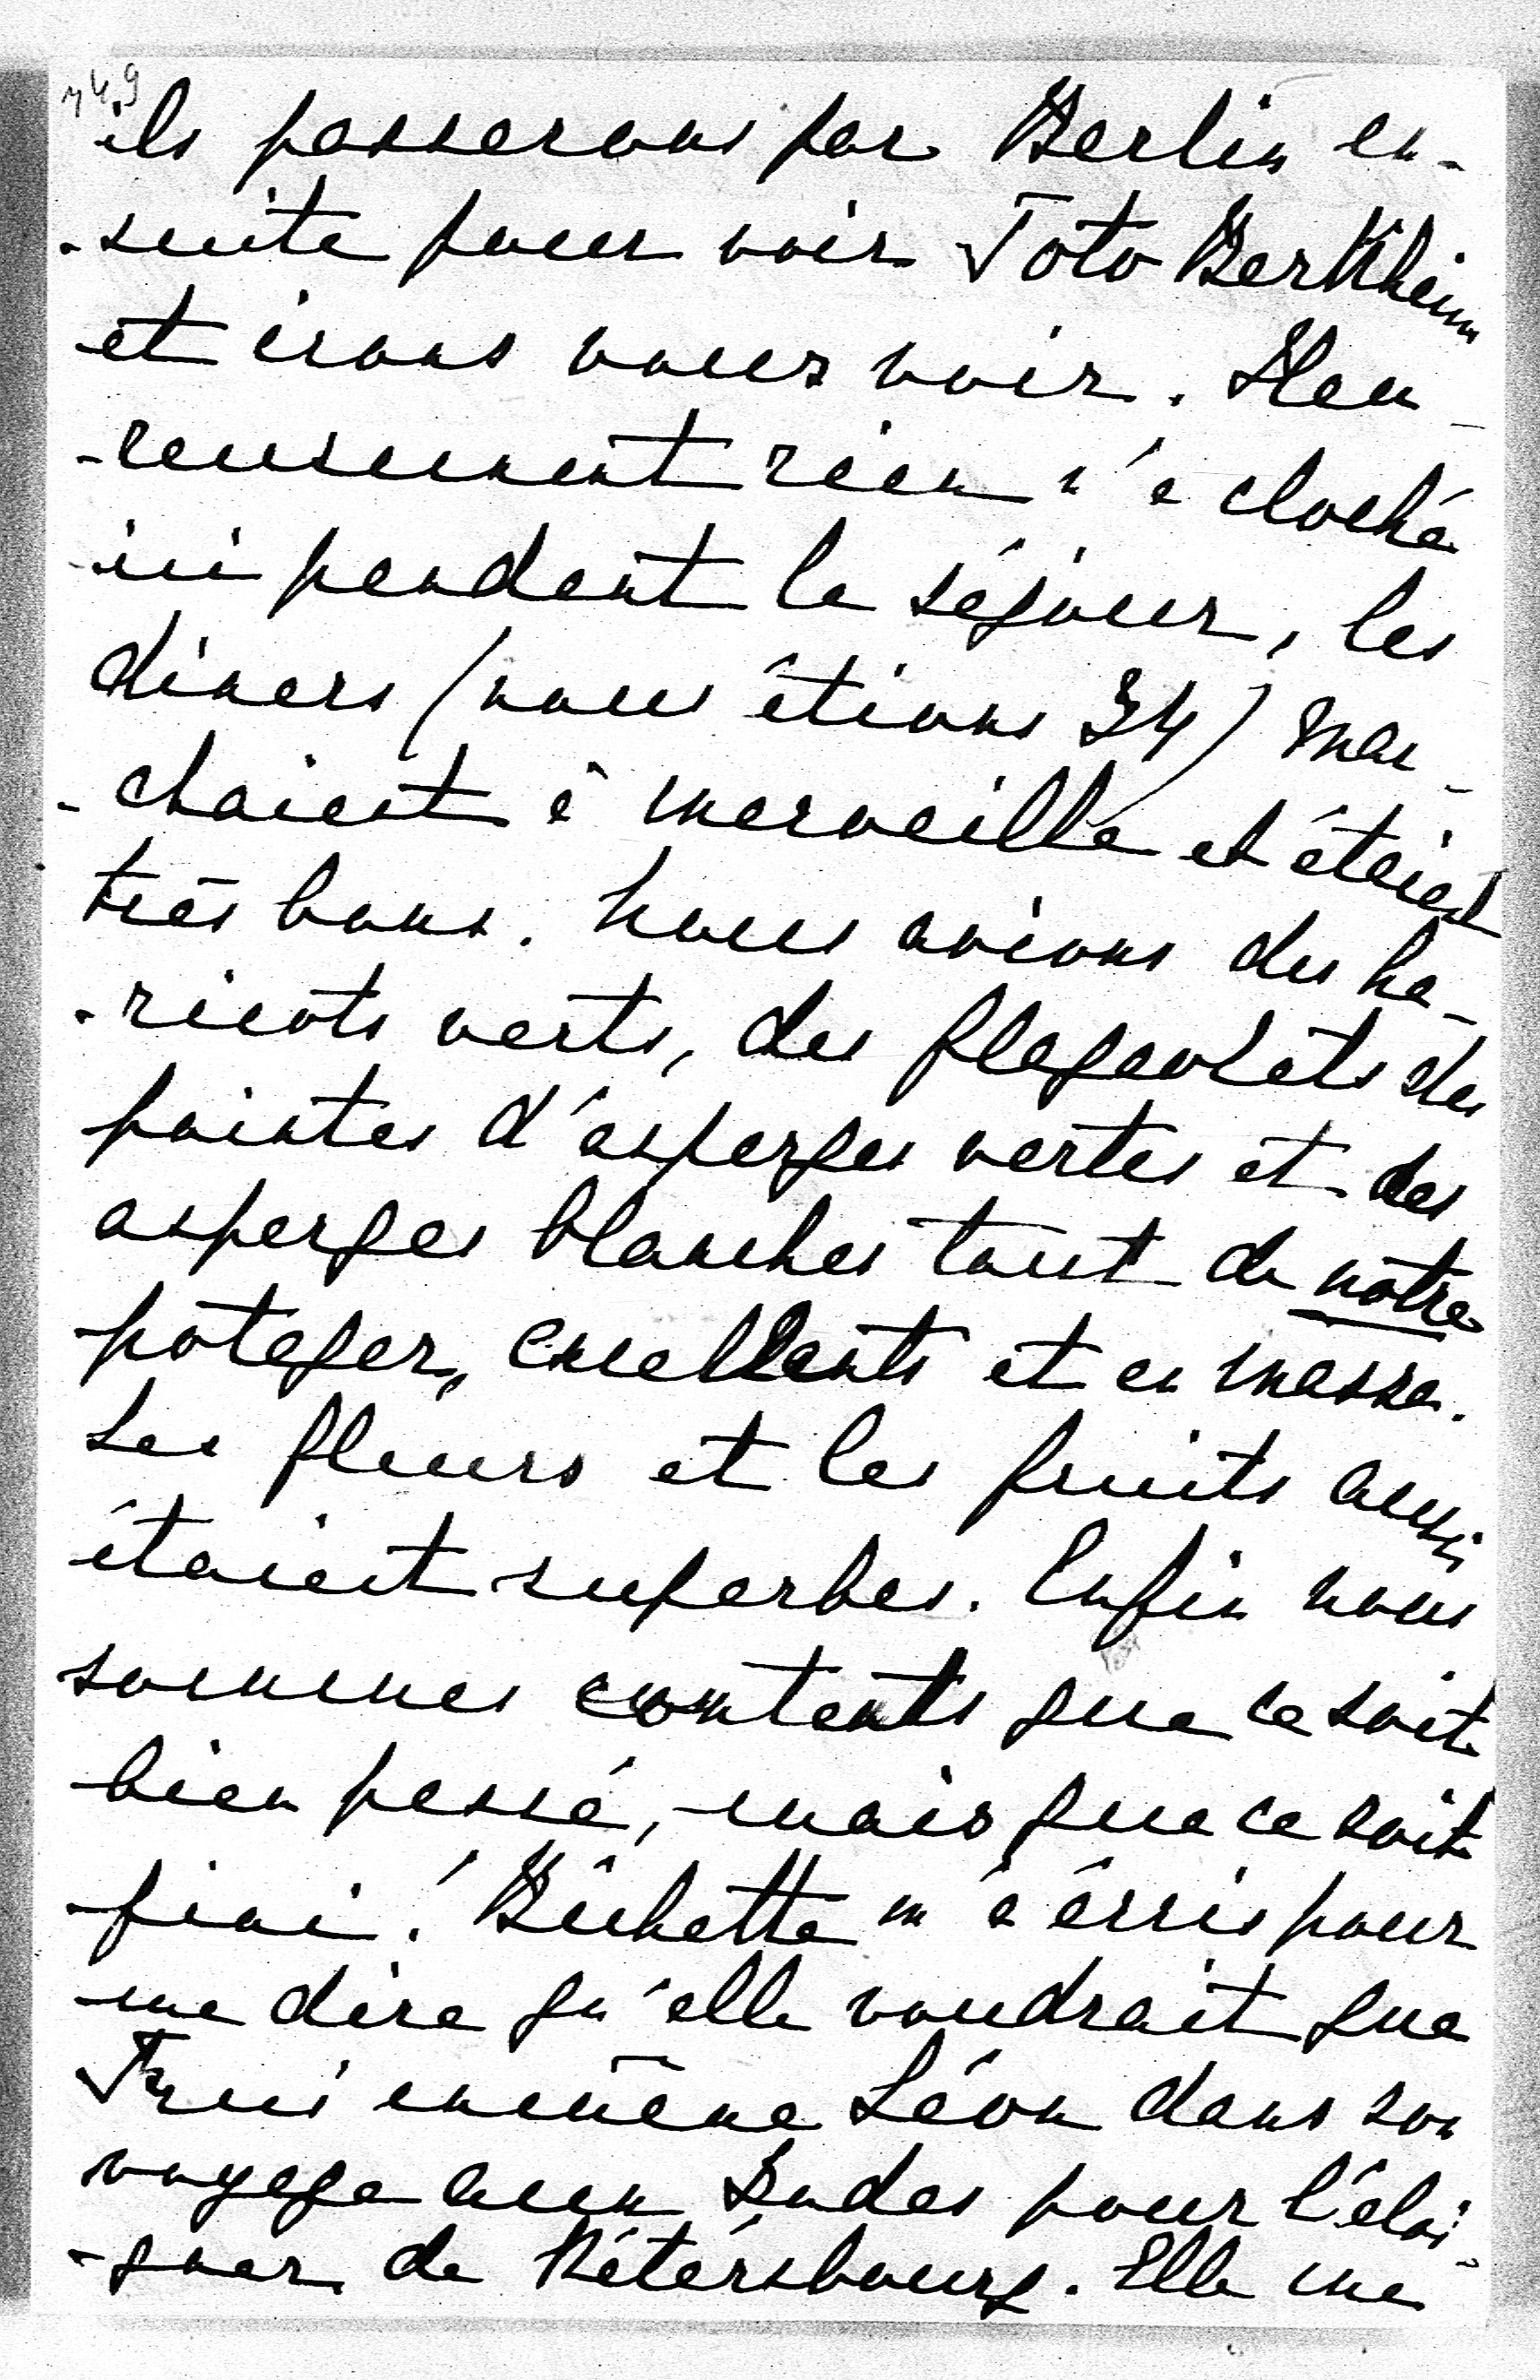 749
ils passerons par Berlin en-
-suite pour voir Toto Berkheim
et irons vous voir. Heu-
-reusement rien n'a cloché
ici pendant le séjour, les
diners (nous étions 34) mar-
-chaient à merveille et étaient
très bons. Nous avions des ha-
-ricots verts, des flageolets des
pointes d'asperges vertes et des
asperges blanches tout de notre
potager, excellents et en masse.
Les fleurs et les fruits aussi
étaient superbes. Enfin nous
sommes contents que ce soit
bien passé, mais que ce soit
fini! Bichette m'a écris pour
me dire qu'elle voudrait que
emmène Léon dans son
voyage aux Indes pour l'éloi-
-gner de Pétérsbourg. Elle me